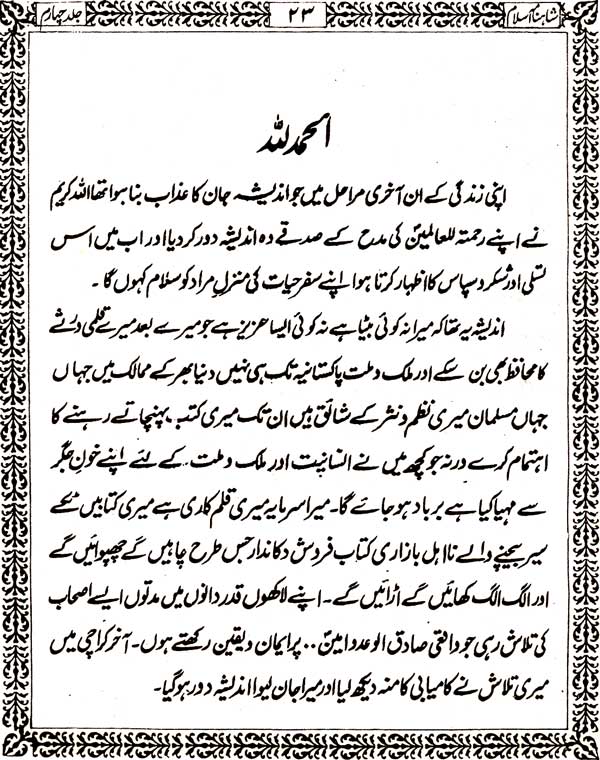 شاہنامۂ اسلام
۲۳
جلد چہارم
الحمد للہ
اپنی زندگی کے ان آخری مراحل میں جو اندیشہ جان کا عذاب بنا ہوا تھا اللہ کریم
نے اپنے رحمتہ للعالمینؐ کی مدح کے صدقے وہ اندیشہ دور کر دیا اور اب میں اس
تسلی اور شکر و سپاس کا اظہار کرتا ہوا اپنے سفرِ حیات کی منزلِ مراد کو سلام کہوں گا۔
اندیشہ یہ تھا کہ میرا نہ کوئی بیٹا ہے نہ کوئی ایسا عزیز ہے جو میرے بعد میرے قلمی ورثے
کا محافظ بھی بن سکے اور ملک و ملت پاکستانیہ تک ہی نہیں دنیا بھر کے ممالک میں جہاں
جہاں مسلمان میری نظم و نثر کے شائق ہیں ان تک میری کتب پہنچاتے رہنے کا
اہتمام کرے ورنہ جو کچھ میں نے انسانیت اور ملک و ملت کے لئے اپنے خونِ جگر
سے مہیا کیا ہے برباد ہو جائے گا۔ میرا سرمایہ میری قلم کاری ہے میری کتابیں ٹکے
سیر بیچنے والے نااہل بازاری کتاب فروش دکاندار جس طرح چاہیں گے چھپوائیں گے
اور الگ الگ کھائیں گے اڑائیں گے۔ اپنے لاکھوں قدردانوں میں مدتوں ایسے اصحاب
کی تلاش رہی جو واقعی صادق الوعد و امینؐ ۰۰ پر ایمان و یقین رکھتے ہوں۔ آخر کراچی میں
میری تلاش نے کامیابی کا منہ دیکھ لیا اور میرا جان لیوا اندیشہ دور ہو گیا۔